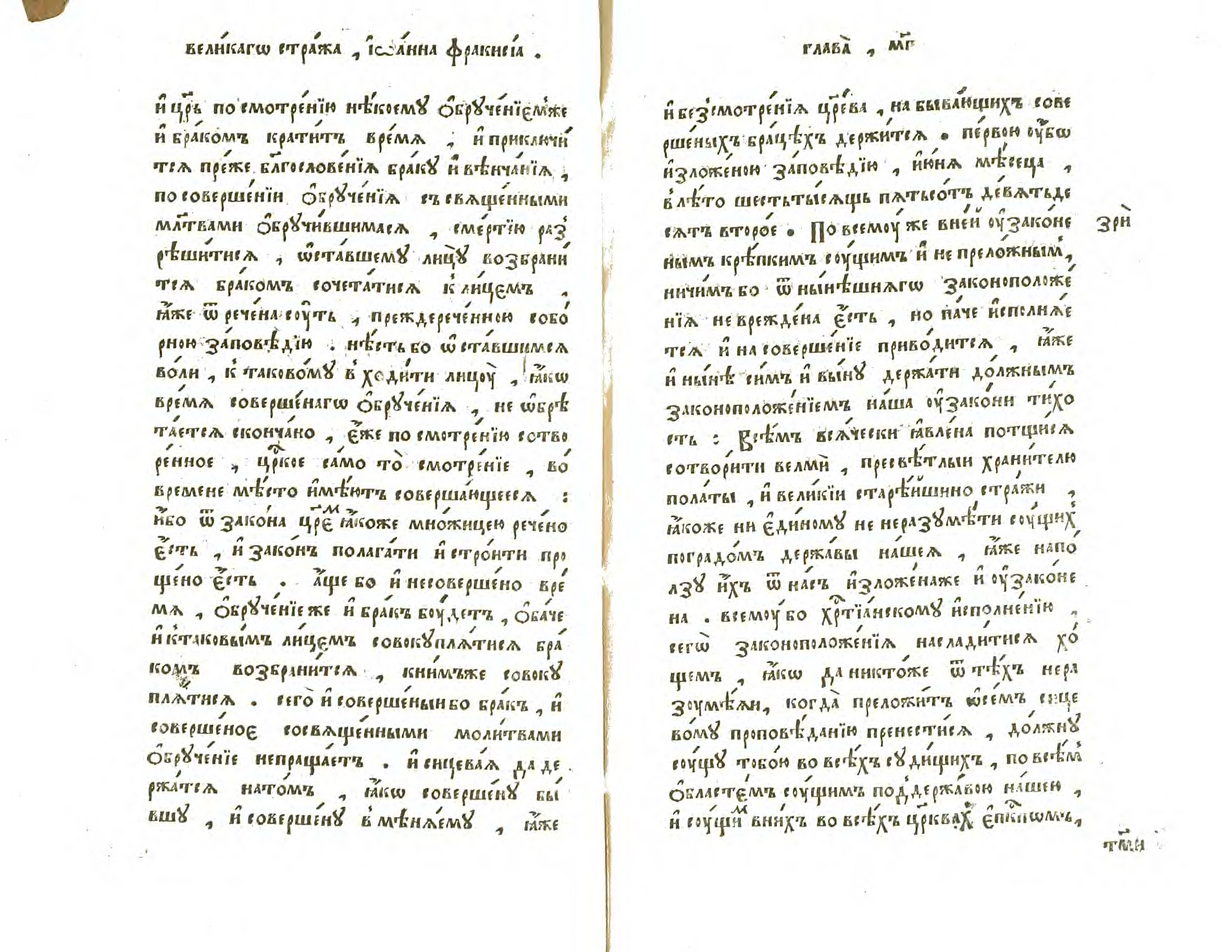 вели́кагѡ стра́жа , і҆ѡа́нна ѳракисі́а .
и҆ цр҃ь по смотре́нїю нѣ́коемꙋ ѻ҆брꙋче́нїем же
и҆ бра́комъ крати́тъ вре́мѧ , и҆ приключи́
тсѧ пре́же блгⷭ҇ослове́нїѧ бра́кꙋ и҆ вѣнча́нїѧ ,
по соверше́нїи ѻ҆брꙋче́нїѧ съ свѧще́нными
мл҃твами ѻ҆брꙋчи́вшимасѧ , сме́ртїю раз̾
рѣши́тисѧ , ѡ҆ста́вшемꙋ лицꙋ̀ возбрани́
тсѧ бра́комъ сочета́тисѧ к лице́мъ ,
ꙗ҆́же ѿ рече́на соу́ть , преждерече́нною собо́
рною за́повѣдїю . нѣ́сть бо ѡ҆ста́вшимсѧ
во́ли , к тако́вомꙋ в ходи́ти лицоу̀ , ꙗ҆́кѡ
вре́мѧ соверше́нагѡ ѻ҆брꙋче́нїѧ , не ѡ҆брѣ
та́етсѧ сконча́но , є҆́же по смотре́нїю сотво
ре́нное , црⷭ҇кое са́мо то̀ смотре́нїе , во́
времене мѣ́сто и҆мѣ́ютъ соверша́ющеесѧ :
и҆́бо ѿ зако́на цр҃емъ ꙗ҆́коже мно́жицею рече́но
є҆́сть , и҆ зако́нъ полага́ти и҆ стро́ити про
щено̀ є҆́сть . а҆́ще бо и҆ несоверше́но вре́
мѧ , ѻ҆брꙋче́нїе же и҆ бра́къ боу́детъ , ѻ҆ба́че
и҆ к тако́вымъ лице́мъ совокꙋплѧ́тисѧ бра́
комъ возбрани́тсѧ , книмъже совокꙋ
плѧ́тисѧ . сего̀ и҆ соверше́ныи бо бра́къ , и҆
соверше́ное сосвѧще́нными моли́твами
ѻ҆брꙋче́нїе непраща́етъ . и҆ сицева́ѧ да де
ржа́тсѧ нато́мъ , ꙗ҆́кѡ соверше́нꙋ бы́
вшꙋ , и҆ соверше́нꙋ в мѣнѧ́емꙋ , ꙗ҆́же
глава̀ , мг҃
и҆ без̾смотре́нїѧ цр҃е́ва , на быва́ющихъ сове
рше́ныхъ бра́цѣхъ держи́тсѧ . пе́рвою оу҆́бѡ
и҆зложе́ною за́повѣдїю , и҆ю́нѧ мѣ́сеца ,
в лѣ́то шестьты́сѧщь пѧтьсо́тъ девѧтьде
сѧ́тъ второ́е . По всемоу́ же вне́й оу҆зако́не
зрѝ
нымъ крѣ́пкимъ соу́щимъ и҆ не прело́жным̾ ,
ничи́мъ бо ѿ ны́нѣшнѧгѡ законоположе́
нїѧ не врежде́на є҆́сть , но па́че и҆сполнѧ́е
тсѧ и҆ на соверше́нїе приво́дитсѧ , ꙗ҆́же
и҆ ны́нѣ си́мъ и҆ вы́нꙋ держа́ти до́лжнымъ
законоположе́нїемъ на́ша оу҆зако́ни ти́хо
сть : Всѣ́мъ всѧ́чески ꙗ҆вле́на потщи́сѧ
сотвори́ти велмѝ , пресвѣ́тлыи храни́телю
пола́ты , и҆ вели́кїи старѣ́йшино стра́жи ,
ꙗ҆́коже ни є҆ди́номꙋ не неразꙋмѣ́ти соу́щих̾
по градо́мъ держа́вы на́шеѧ , ꙗ҆́же напо́
лзꙋ и҆́хъ ѿ на́съ и҆зложе́на же и҆ оу҆зако́не
на . всемоу́ бо хрⷭ҇тїа́нскомꙋ и҆сполне́нїю ,
сегѡ̀ законоположе́нїѧ наслади́тисѧ хо́
щемъ , ꙗ҆́кѡ да никто́же ѿ тѣ́хъ нера
зоумѣ́ѧи , когда̀ преложи́тъ ѡ҆ се́мъ сице
во́мꙋ проповѣ́данїю пренести́сѧ , до́лжнꙋ
соу́щꙋ тобо́ю во всѣ́хъ сꙋди́щихъ , по всѣ́м̾
ѻ҆бласте́мъ соу́щимъ под̾ держа́вою на́шею ,
и҆ соу́щим вни́хъ во всѣ́хъ цр҃квах̾ є҆пⷭ҇кпѡмъ ,